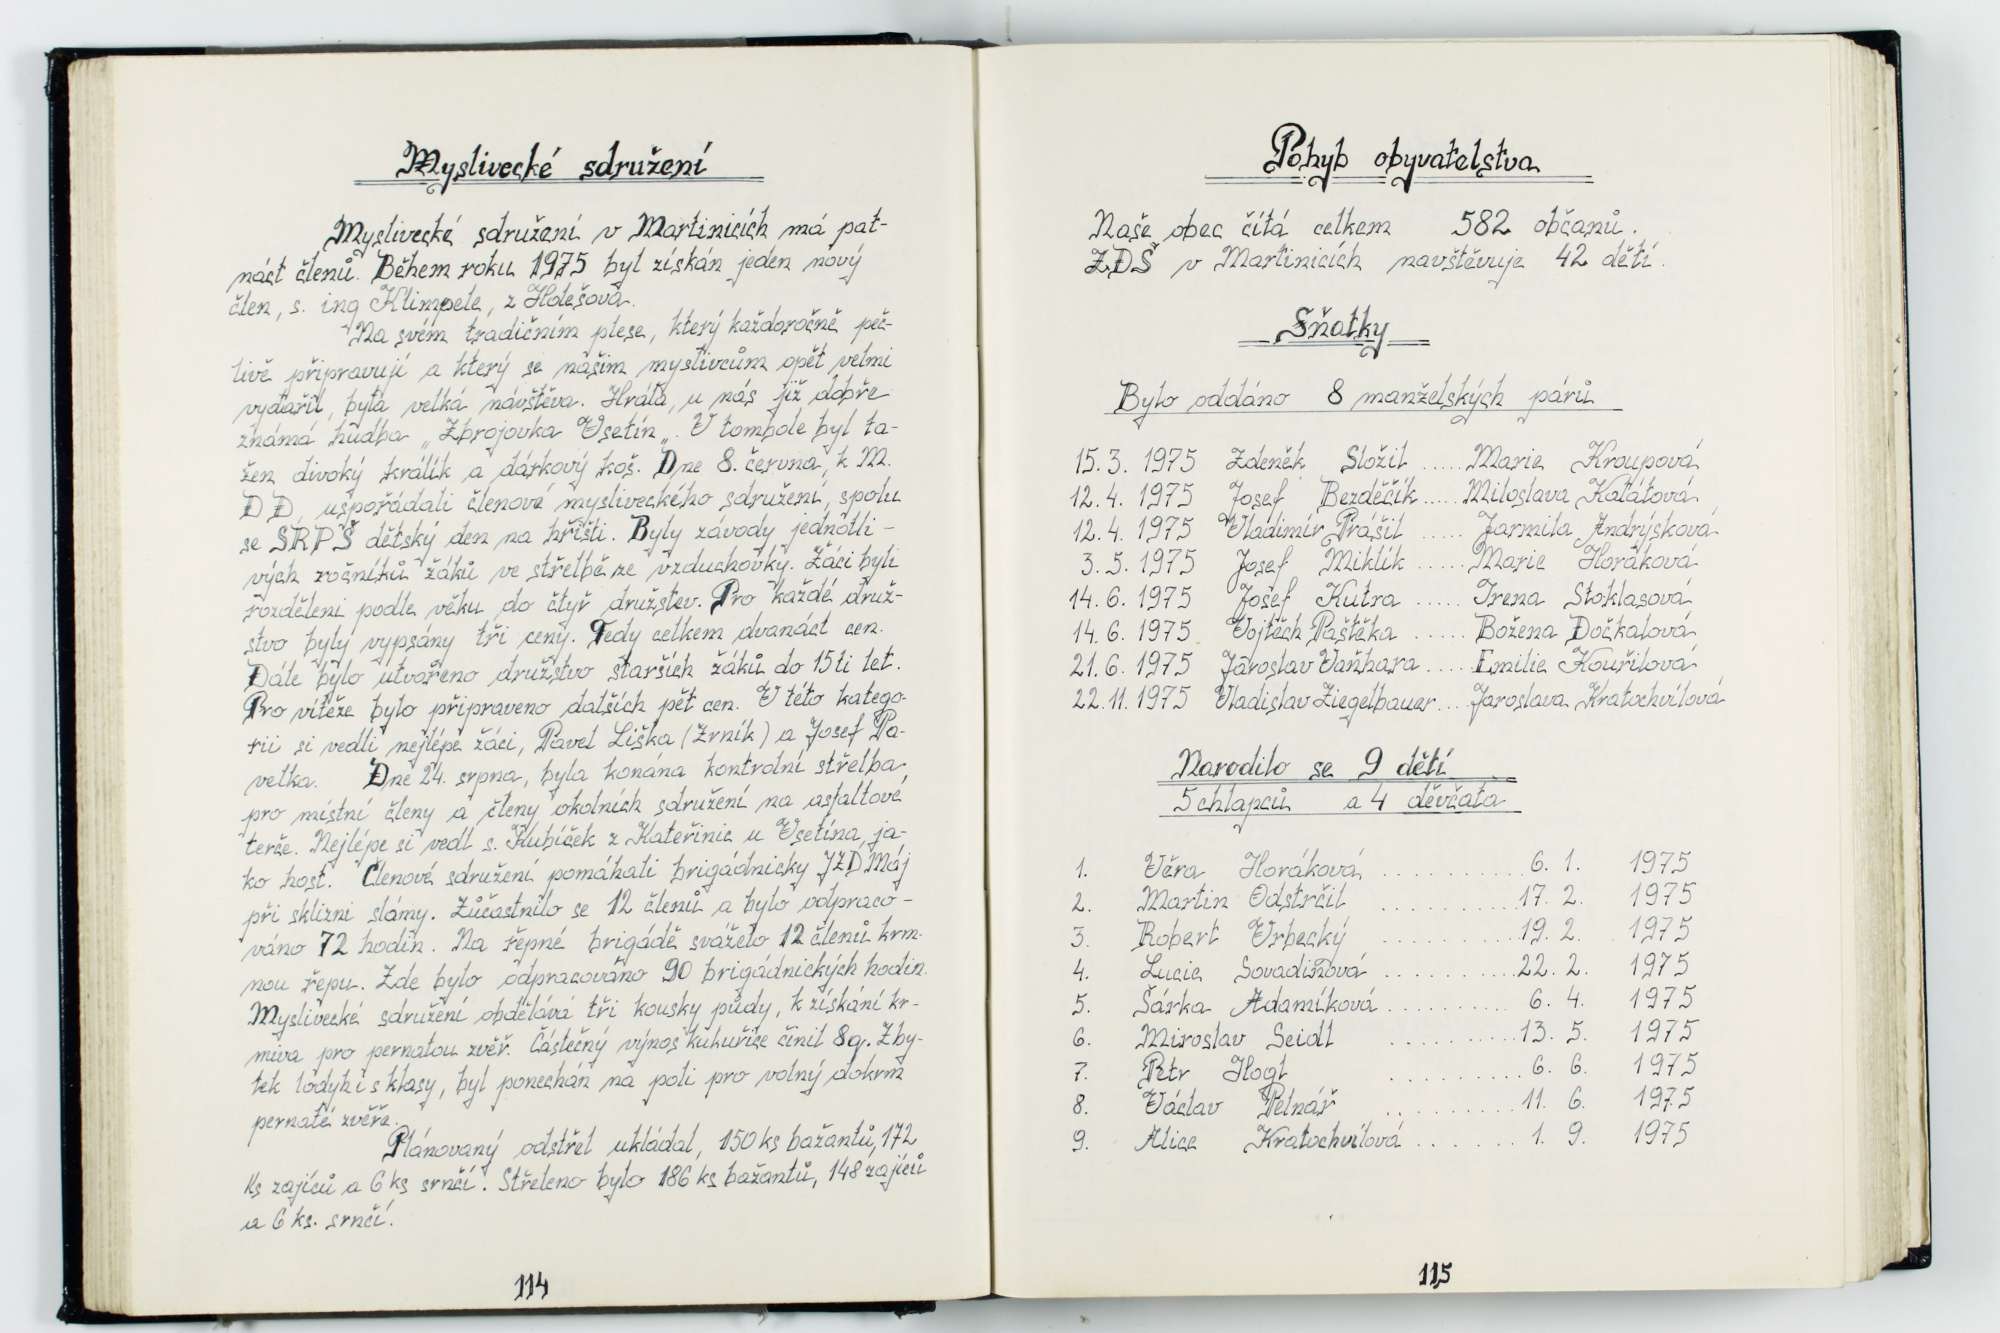 Myslivecké sdružení
Myslivecké sdružení v Martinicích má pat-
náct členů. Během roku 1975 byl získán jeden nový
člen, s. ing Klimpele, z Holešova.
Na svém tradičním plese, který každoročně peč-
livě připravují a který se našim myslivcům opět velmi
vydařil, byla velká návštěva. Hrála, u nás již dobře
známá hudba „Zbrojovka Vsetín„. V tombole byl ta-
žen divoký králík a dárkový koš. Dne 8. června, k M.
D D, uspořádali členové mysliveckého sdružení, spolu
se SRPŠ dětský den na hřišti. Byly závody jednotli-
vých ročníků žáků ve střelbě ze vzduchovky. Žáci byli
rozděleni podle věku do čtyř družstev. Pro každé druž-
stvo byly vypsány tři ceny. Tedy celkem dvanáct cen.
Dále bylo utvořeno družstvo starších žáků do 15ti let.
Pro vítěze bylo připraveno dalších pět cen. V této katego-
rii si vedli nejlépe žáci, Pavel Liška (Zrník) a Josef Pa-
velka. Dne 24. srpna, byla konána kontrolní střelba,
pro místní členy a členy okolních sdružení na asfaltové
terče. Nejlépe si vedl s. Kubíček z Kateřinic u Vsetína, ja-
ko host. Členové sdružení pomáhali brigádnicky JZD Máj
při sklizni slámy. Zúčastnilo se 12 členů a bylo odpraco-
váno 72 hodin. Na řepné brigádě sváželo 12 členů krm-
nou řepu. Zde bylo odpracováno 90 brigádnických hodin.
Myslivecké sdružení obdělává tři kousky půdy, k získání kr-
miva pro pernatou zvěř. Částečný výnos kukuřice činil 8q. Zby-
tek lodyh i s klasy, byl ponechán na poli pro volný dokrm
pernaté zvěře.
Plánovaný odstřel ukládal, 150 ks bažantů, 172
ks zajíců a 6 ks srnčí. Střeleno bylo 186 ks bažantů, 148 zajíců
a 6 ks. srnčí.
114
Pohyb obyvatelstva
Naše obec čítá celkem 582 občanů.
ZDŠ v Martinicích navštěvuje 42 dětí.
Sňatky
Bylo oddáno 8 manželských párů
15. 3. 1975 Zdeněk Složil ..... Marie Kroupová
12. 4. 1975 Josef Bezděčík ..... Miloslava Kalátová
12. 4. 1975 Vladimír Prášil ..... Jarmila Andrýsková
3. 5. 1975 Josef Miklík ...... Marie Horáková
14. 6. 1975 Josef Kutra ...... Irena Stoklasová
14. 6. 1975 Vojtěch Paštěka ...... Božena Dočkalová
21. 6. 1975 Jaroslav Vaňhara ..... Emilie Kouřilová
22. 11. 1975 Vladislav Ziegelbauer ... Jaroslava Kratochvílová
Narodilo se 9 dětí
5 chlapců a 4 děvčata
1. Věra Horáková ........... 6. 1. 1975
2. Martin Odstrčil .......... 17. 2. 1975
3. Robert Vrbecký .......... 19. 2. 1975
4. Lucie Sovadinová .......... 22. 2. 1975
5. Šárka Adamíková .......... 6. 4. 1975
6. Miroslav Seidl .......... 13. 5. 1975
7. Petr Hogl .......... 6. 6. 1975
8. Václav Pelnář .......... 11. 6. 1975
9. Alice Kratochvílová ....... 1. 9. 1975
115